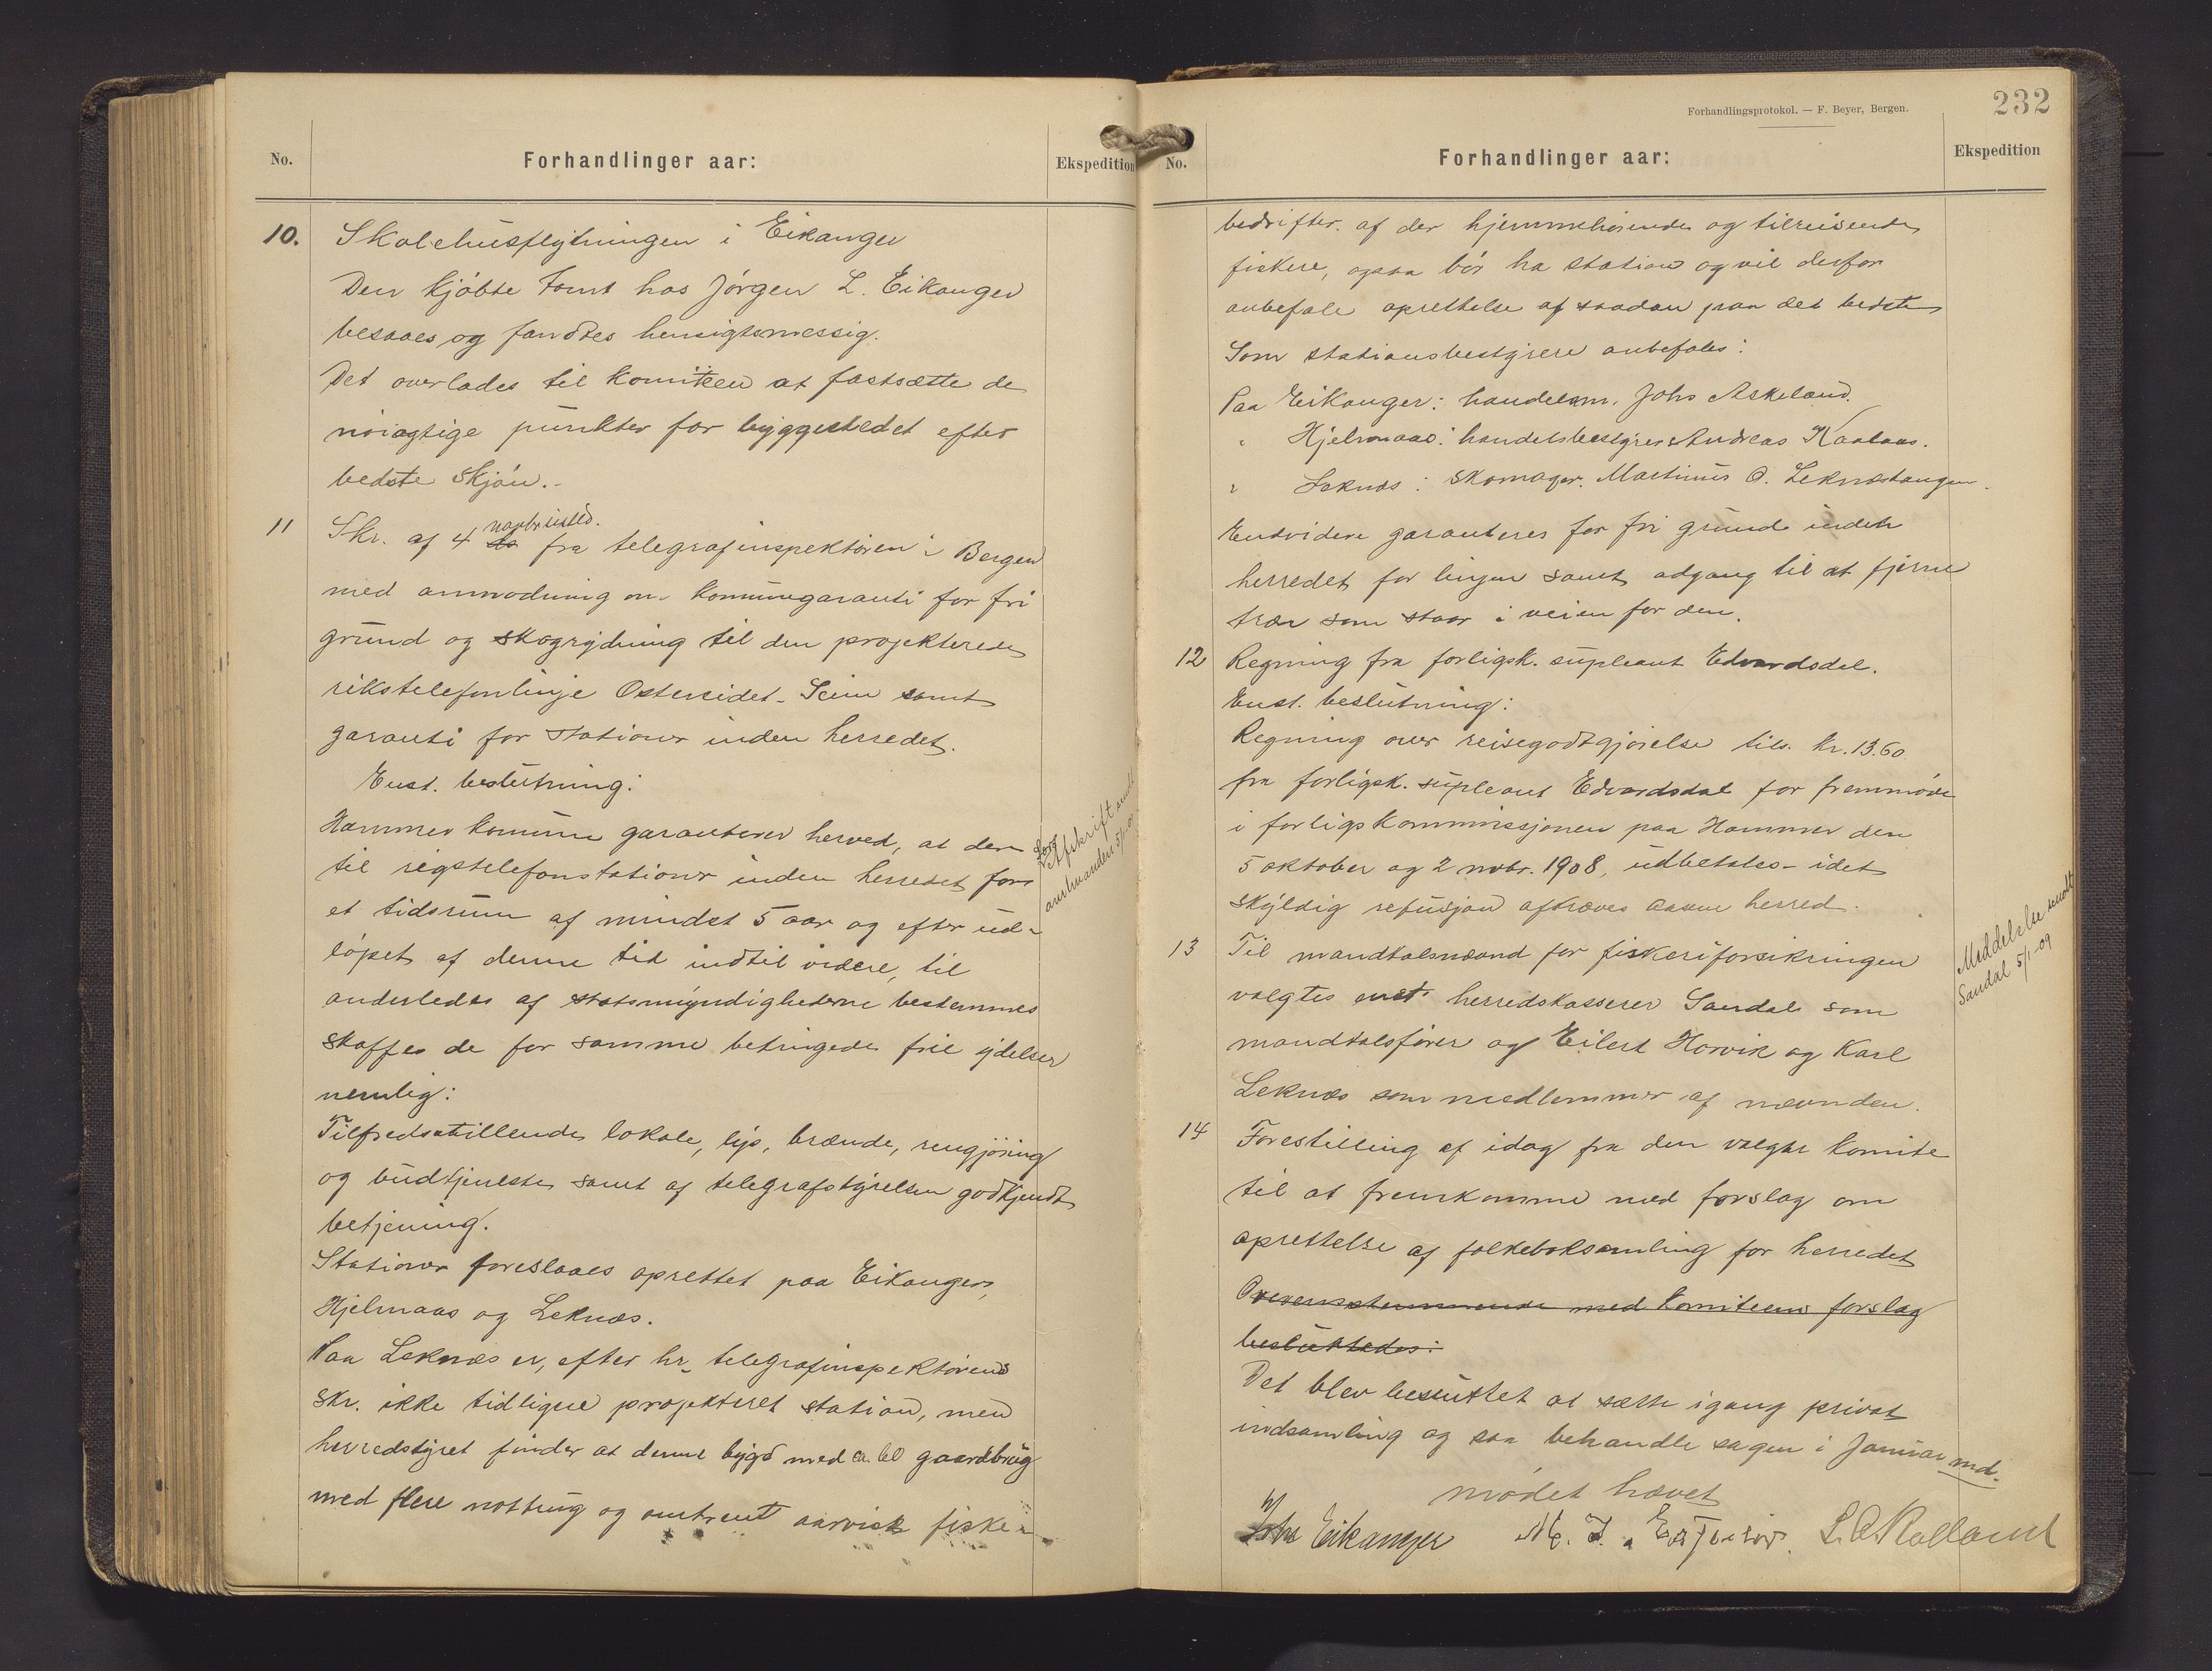 No. Forhandlinger aar: Ekspedition
10. Skolehusflytningen i Eikanger
Den kjøbte tomt hos Jørgen L. Eikanger
besaaes og fandtes hensigtsmessig.
Det overlades til komiteen at fastsætte de
nøiagtige punkter for byggestedet efter
bedste skjøn.-
11 Skr. af 4 novbr sisstl. fra telegrafinspektøren i Bergen
med anmodning om komunegaranti for fri
grund og skogrydning til den projekterede
rikstelefonlinje Ostereidet - Seim samt
garanti for stationer inden herredet.
Enst. beslutning:
Hammer komune garanterer herved, at der
til rigstelefonstationer inden herredet for
et tidsrum af mindst 5 aar og efter ud-
løpet af denne tid indtil videre, til
anderledes af statsmyndighederne bestemmes
skaffes de for samme betingede frie ydelser
nemlig:
Tilfredsstillende lokale, lys, brænde, rengjøring
og budtjeneste samt af telegrafstyrelsen godkjendt
betjening.
Stationer foreslaaes oprettet paa Eikanger,
Hjelmaas og Leknæs.
Paa Leknæs er, efter hr. telegrafinspektørens
skr. ikke tidligere projekteret station, men
herredstyret finder at denne bygd med ca. 60 gaardbrug
med flere notbrug og omtrent aarvisk fiske-
Afskrift sendt
amtmanden 5/1-09
Forhandlingsprotokol. — F. Beyer, Bergen.
232
No. Forhandlinger aar: Ekspedition
bedrifter. af der hjemmehørende og tilreisende
fiskere, ogsaa bør ha station og vil derfor
anbefale oprettelse af saadan paa det bedste
Som stationsbestyrere anbefales:
Paa Eikanger: handelsm. Johs Askeland.
" Hjelmaas: handelsbestyrer Andreas Kaalaas.
" Leknæs: skomager. Martinus O. Leknæstangen.
Endvidere garanteres for fri grund inden
herredet for linjen samt adgang til at fjerne
trær som staar i veien for den.
12 Regning fra forligsk. supleant Edvardsdal.
Enst. beslutning:
Regning over reisegodtgjørelse tils. kr. 13.60
fra forligsk. supleant Edvardsdal for fremmøde
i forligskommissjonen paa Hammer den
5 oktober og 2 novbr. 1908, udbetales - idet
skyldig refusjon afkræves Aasene herred.
13 Til mandtalsnævnd for fiskeriforsikringen
valgtes enst. herredskasserer Sandal som
mandtalsfører og Eilert Horvik og Karl
Leknæs som medlemmer af nævnden.
Meddelelse sendt
Sandal 5/1-09
14 Forestilling af idag fra den valgte komite
til at fremkomme med forslag om
oprettelse af folkeboksamling for herredet
Overensstemmende med komiteens forslag
besluttedes:
Det blev besluttet at sætte igang privat
indsamling og saa behandle sagen i Januar md.
mødet hævet
Johs Eikanger L. O. Rolland